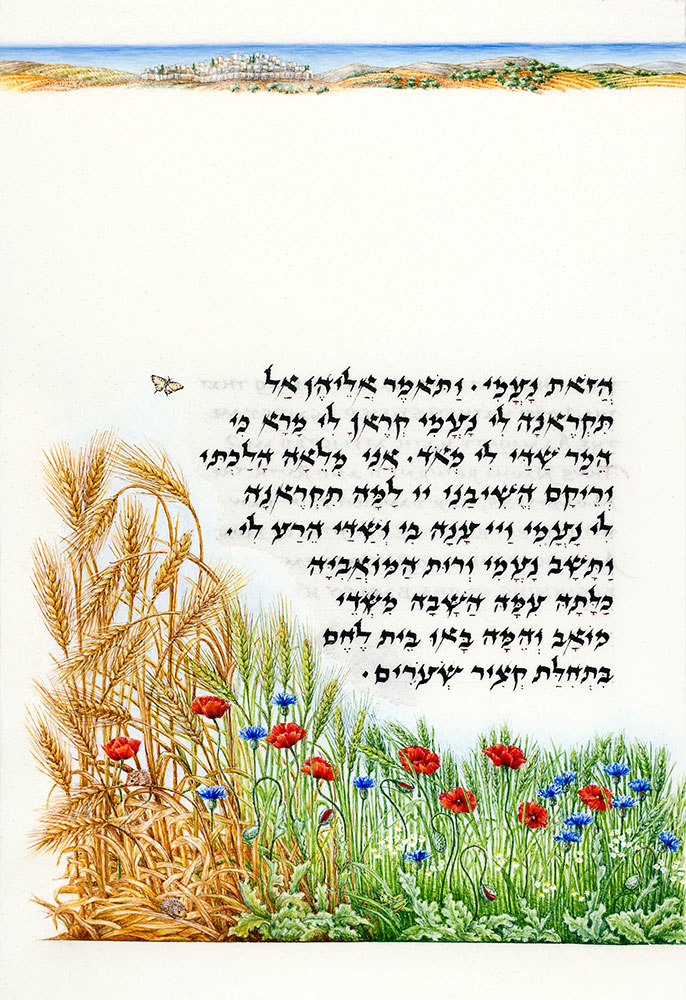 הֲזֹאת נָעֳמִי. וַתֹּאמֶר אֲלֵיהֶן אַל
תִּקְרֶאנָה לִי נָעֳמִי קְרֶאןָ לִי מָרָא כִּי
הֵמַר שַׁדַּי לִי מְאֹד. אֲנִי מְלֵאָה הָלַכְתִּי
וְרֵיקָם הֱשִׁיבַנִי יי לָמָּה תִקְרֶאנָה
לִי נָעֳמִי וַיי עָנָה בִי וְשַׁדַּי הֵרַע לִי.
וַתָּשָׁב נָעֳמִי וְרוּת הַמּוֹאֲבִיָּה
כַלָּתָהּ עִמָּהּ הַשָּׁבָה מִשְּׂדֵי
מוֹאָב וְהֵמָּה בָּאוּ בֵּית לֶחֶם
בִּתְחִלַּת קְצִיר שְׂעֹרִים.